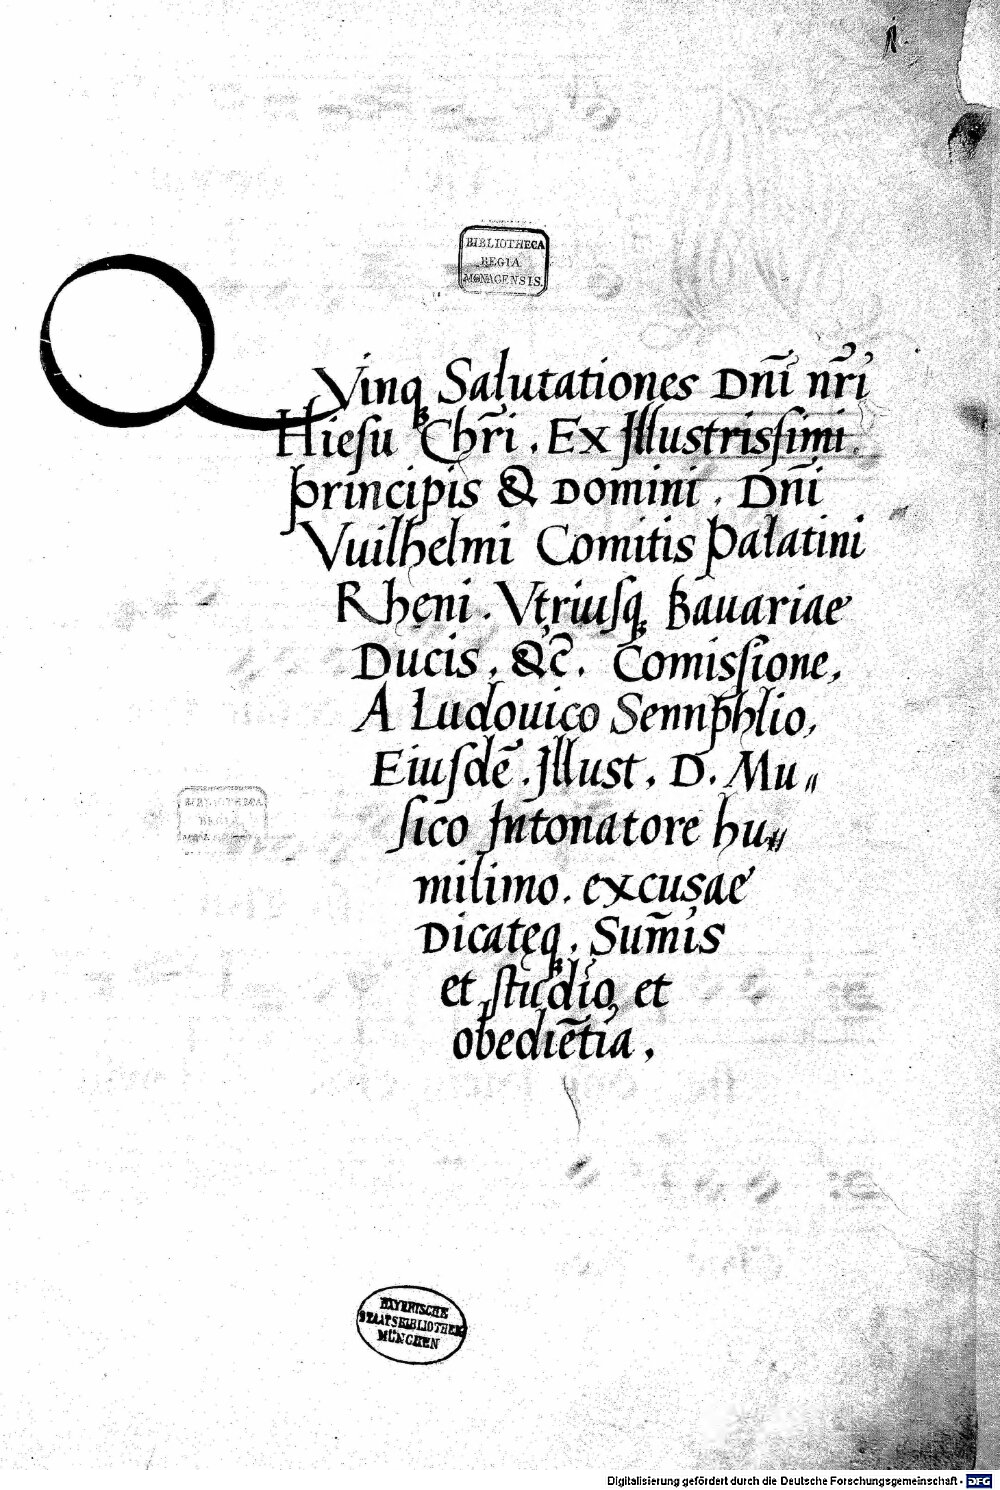 1.
BIBLIOTHECA
REGIA
MONACENSIS.
QVinqꝫ Salutationes Dn̄i nr̄i
Hieſu Chr̄i. Ex Illustriſſimi
principis & Domini. Dn̄i
Vuilhelmi Comitis Palatini
Rheni. Vtriuſqꝫ Bauariae
Ducis, &c̄. Comiſſione,
A Ludouico Sennphlio,
Eiuſdē. Illust. D. Mu〃
ſico Intonatore hu〃
milimo. excusae
Dicatęqꝫ. Sum̄is
et ſtudio, et
obediētia,
BIBLIOTHECA
REGIA
BAYERISCHE
STAATSBIBLIOTHEK
MÜNCHEN
Digitalisierung gefördert durch die Deutsche Forschungsgemeinschaft - DFG